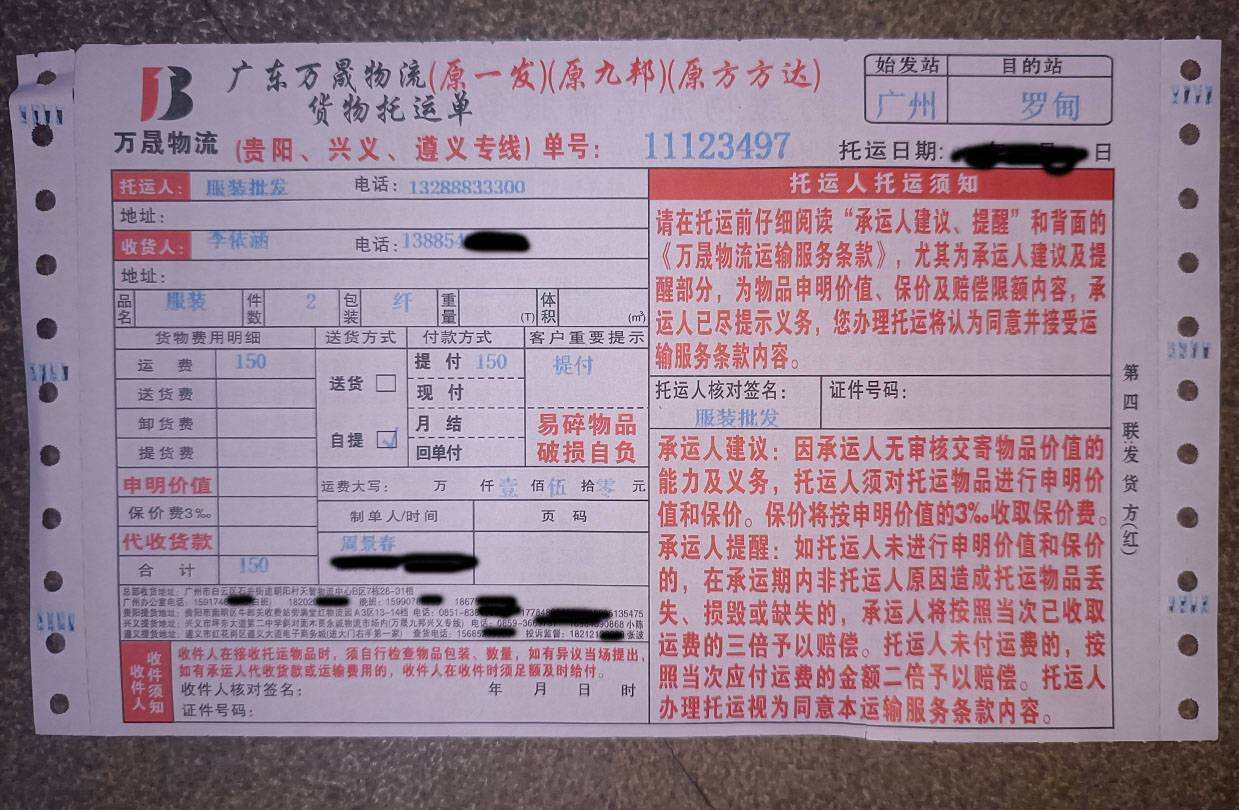 广东万晟物流(原一发)(原九邦)(原方方达)
货物托运单
万晟物流
(贵阳、兴义、遵义专线)单号: 11123497
始发站 目的站
广州 罗甸
托运日期: 日
托运人: 服装批发 电话: 13288833300
地址:
收货人: 李依涵 电话: 138854
地址:
品名 服装 件数 2 包装 纤 重量 (T) 体积 (m³)
货物费用明细 送货方式 付款方式 客户重要提示
运费 150
送货费
卸货费
提货费
申明价值
保价费3‰
代收货款
合计 150
送货
自提
提付 150
现付
月结
回单付
提付
易碎物品
破损自负
运费大写: 万 仟 壹 佰 伍 拾 零 元
制单人/时间 页码
周景春
总部收货地址:广州市白云区石井街道朝阳村天智物流中心B区7栋28-31档
收件人须知
收件人在接收托运物品时,须自行检查物品包装、数量,如有异议当场提出,
如有承运人代收货款或运输费用的,收件人在收件时须足额及时给付。
收件人核对签名: 年 月 日 时
证件号码:
托运人托运须知
请在托运前仔细阅读“承运人建议、提醒”和背面的
《万晟物流运输服务条款》,尤其为承运人建议及提
醒部分,为物品申明价值、保价及赔偿限额内容,承
运人已尽提示义务,您办理托运将认为同意并接受运
输服务条款内容。
托运人核对签名: 证件号码:
服装批发
承运人建议:因承运人无审核交寄物品价值的
能力及义务,托运人须对托运物品进行申明价
值和保价。保价将按申明价值的3‰收取保价费。
承运人提醒:如托运人未进行申明价值和保价
的,在承运期内非托运人原因造成托运物品丢
失、损毁或缺失的,承运人将按照当次已收取
运费的三倍予以赔偿。托运人未付运费的,按
照当次应付运费的金额二倍予以赔偿。托运人
办理托运视为同意本运输服务条款内容。
第四联:发货方(红)